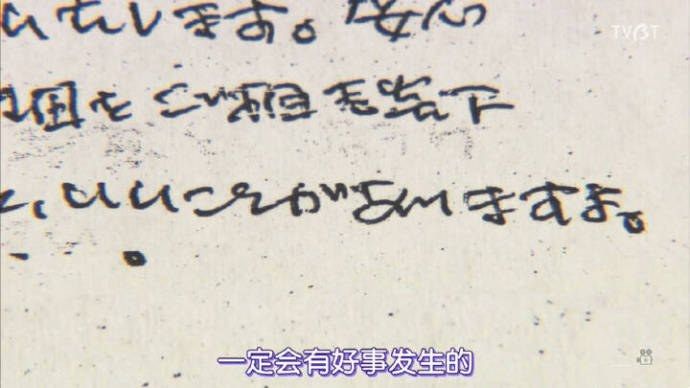 TVBT
いたします。安心
をご
、いいことがありますよ。
一定会有好事发生的